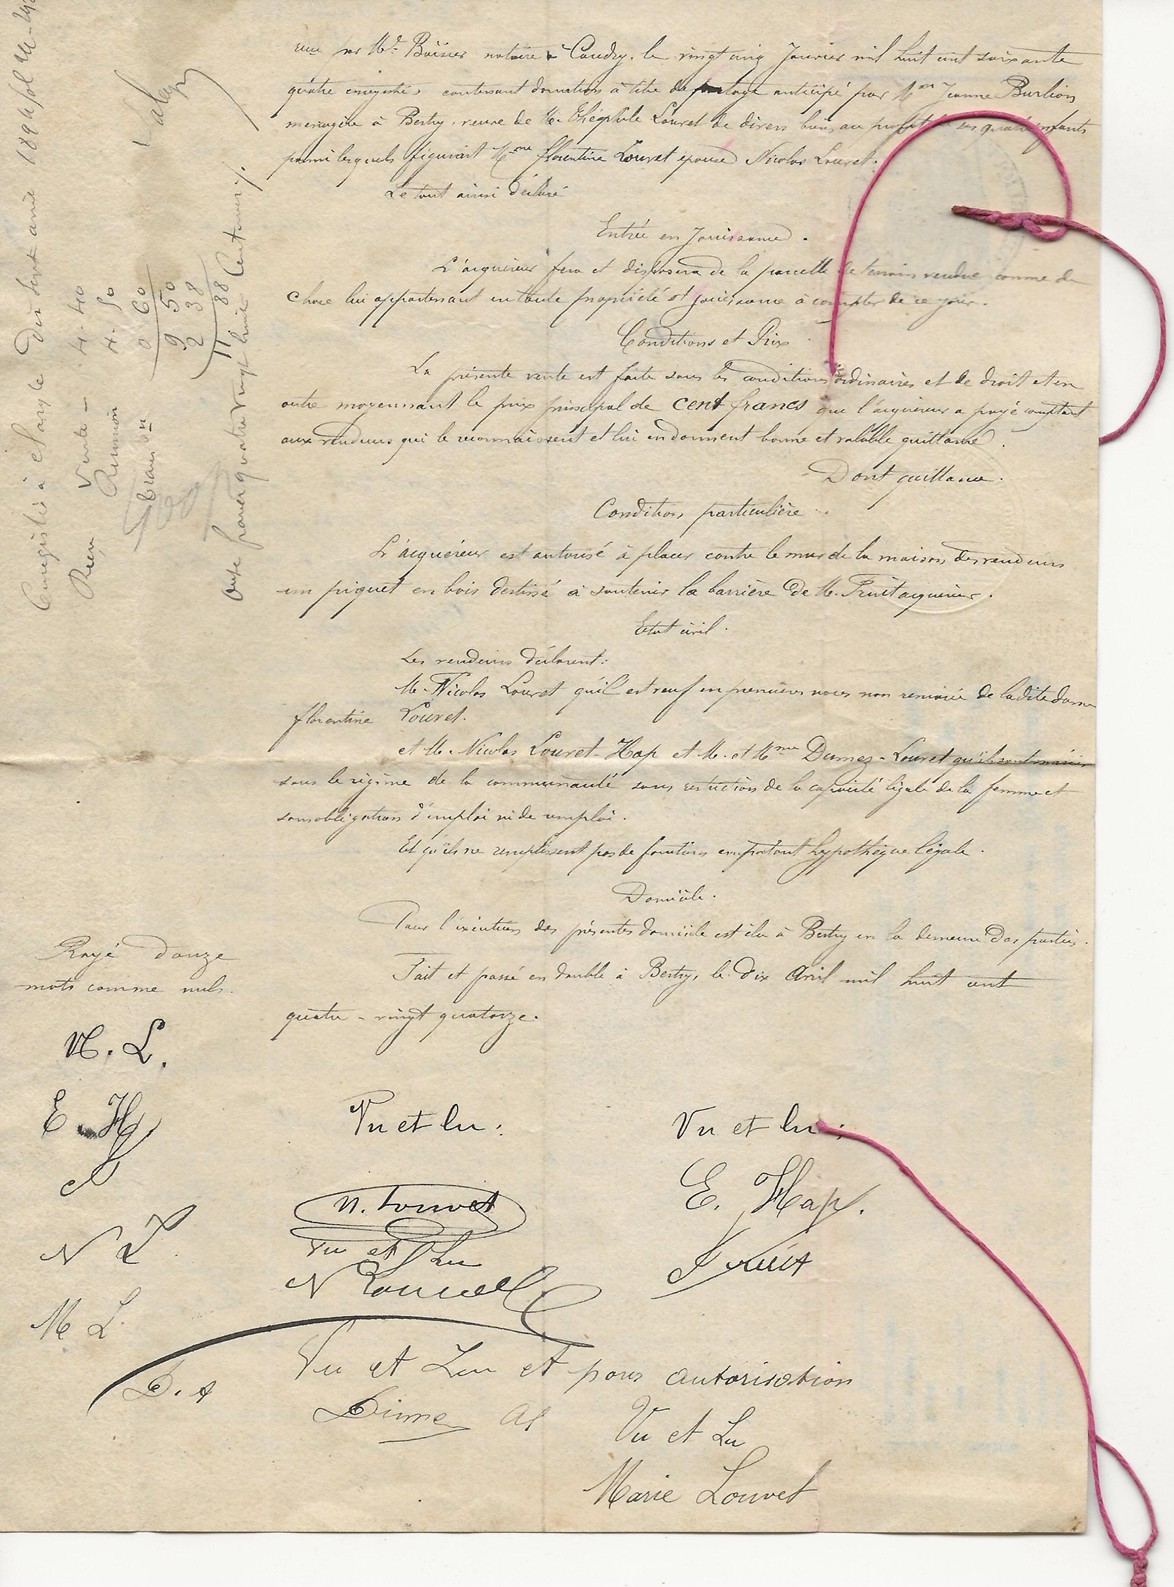 Me Boisier notaire à Caudry, le vingt cinq Janvier mil huit cent soixante
quatre enregistré, contenant donation à titre de partage anticipé par Mme Jeanne Burlion
ménagère à Bertry, veuve de M. Théophile Louvet de divers biens au profit de ses quatre enfants
parmi lesquels figurait Mme florentine Louvet épouse Nicolas Louvet.
Le tout ainsi déclaré
Entrée en Jouissance.
L'acquéreur fera et disposera de la parcelle de terrain vendue comme de
chose lui appartenant en toute propriété et jouissance à compter de ce jour.
Conditions et Prix
La présente vente est faite sous les conditions ordinaires et de droit et en
outre moyennant le prix principal de cent francs que l'acquéreur a payé comptant
aux vendeurs qui le reconnaissent et lui en donnent bonne et valable quittance.
Dont quittance.
Condition particulière
L'acquéreur est autorisé à placer contre le mur de la maison des vendeurs
un piquet en bois destiné à soutenir la barrière de M. Fruit acquéreur.
Etat civil.
Les vendeurs déclarent:
M. Nicolas Louvet qu'il est veuf en premières noces non remarié de la dite dame
florentine Louvet.
et M. Nicolas Louvet-Hap et M. et Mme Dumez-Louvet qu'ils sont mariés
sous le régime de la communauté sans restriction de la capacité légale de la femme et
sans obligation d'emploi ni de remploi.
Et qu'ils ne remplissent pas de fonctions emportant hypothèque légale.
Domicile.
Pour l'exécution des présentes domicile est élu à Bertry en la demeure des parties.
Fait et passé en double à Bertry, le dix Avril mil huit cent
quatre-vingt quatorze.
Rayé douze
mots comme nuls.
N. L.
E. H
N L
M L
D. A
Vu et lu:
N. Louvet
Vu et Lu
N Louvet
Vu et lu:
E. Hap.
Fruit
Vu et Lu et pour autorisation
Dume Al
Vu et Lu
Marie Louvet
Enregistré à Clary le dix sept avril 1894
Reçu Vente - 4.40
Réunion 4.50
0 60
9 50
2 38
11 88
Onze francs quatre vingt huit Centimes